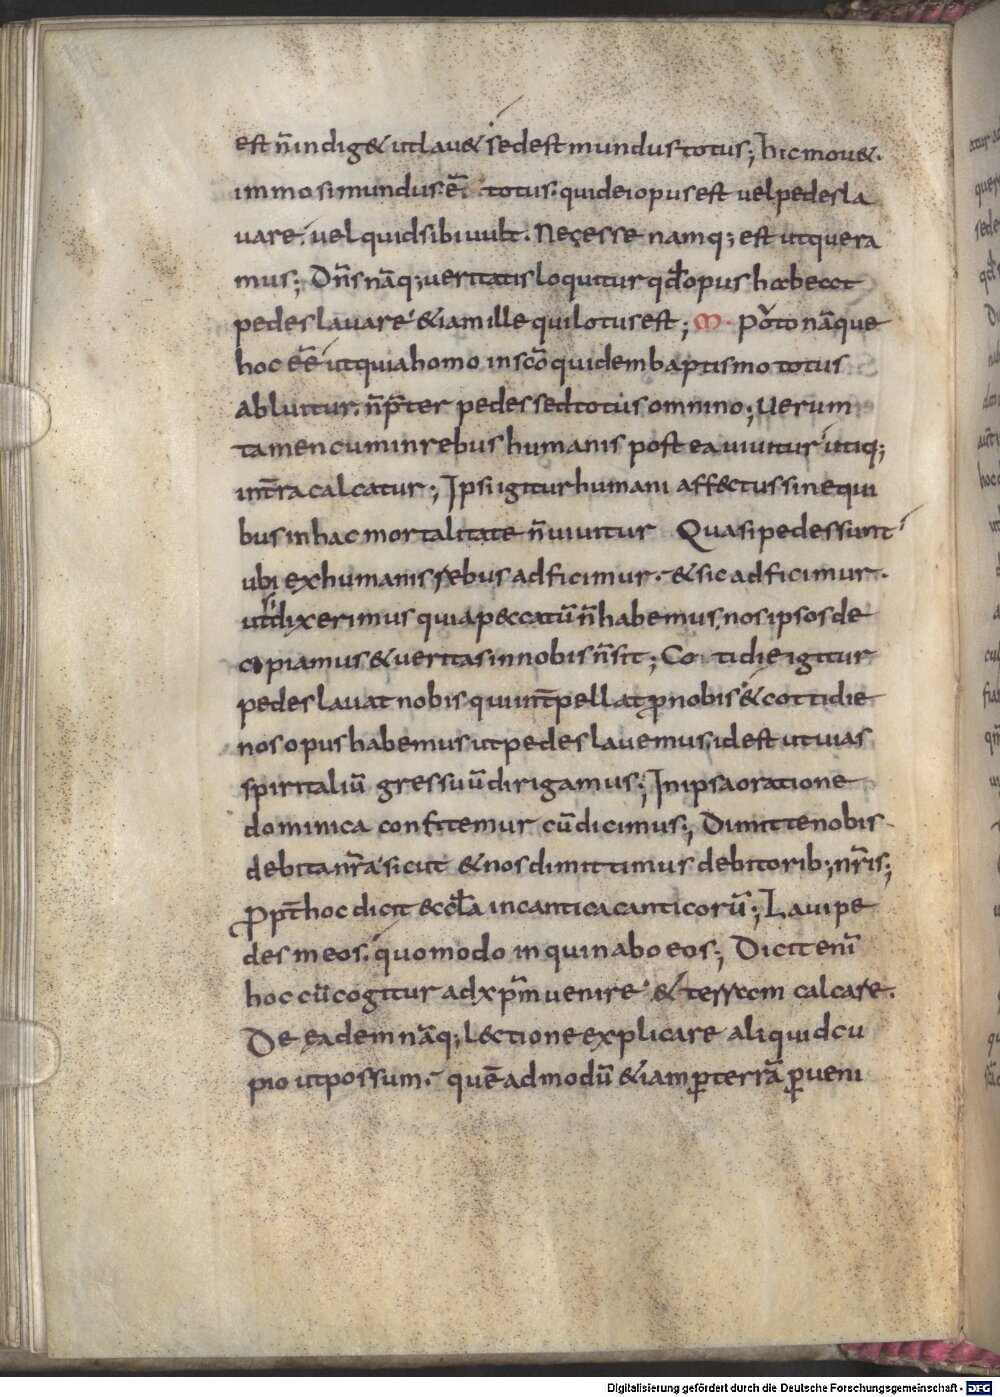 est n̄ indig& ut lau& sed est mundus totus; hic mou&.
immo si mundus ē totus. quid ei opus est vel pedes la
uare. uel quid sibi uult. Necesse namq; est ut quera
mus; Dn̄s nāq; ueritatis loquitur qđ opus habeat
pedes lauare &iam ille qui lotus est; M. Porto nāque
hoc eē ut quia homo in sc̄o quidem baptismo totus
abluitur. n̄ p̄ter pedes sed totus omnino; Uerum
tamen cum in rebus humanis post ea uiuitur utiq;
int̄ra calcatur; Ipsi igitur humani aff&ctus sine qui
bus in hac mortalitate n̄ uiuitur Quasi pedes sunt
ubi ex humanis rebus adficimur. & sic adficimur.
ut si dixerimus quia p&ccatū n̄ habemus. nos ipsos de
cipiamus & ueritas in nobis n̄ sit; Cotidie igitur
pedes lauat nobis qui int̄pellat ꝓ nobis & cottidie
nos opus habemus ut pedes lauemus. id est ut uias
spiritaliū gressuū dirigamus; In ipsa oratione
dominica confitemur cū dicimus; Dimitte nobis
debita nr̄a sicut & nos dimittimus debitorib; nr̄is;
Propt̄ hoc dicit &ccl̄a in cantica canticorū; Laui pe
des meos. quomodo inquinabo eos; Dicit enī
hoc cū cogitur ad xp̄m uenire & terram calcare.
De eadem nāq; l&ctione explicare aliquid cu
pio ut possum. quē ad modū &iam ꝑ terrā ꝑueni
Digitalisierung gefördert durch die Deutsche Forschungsgemeinschaft - DFG